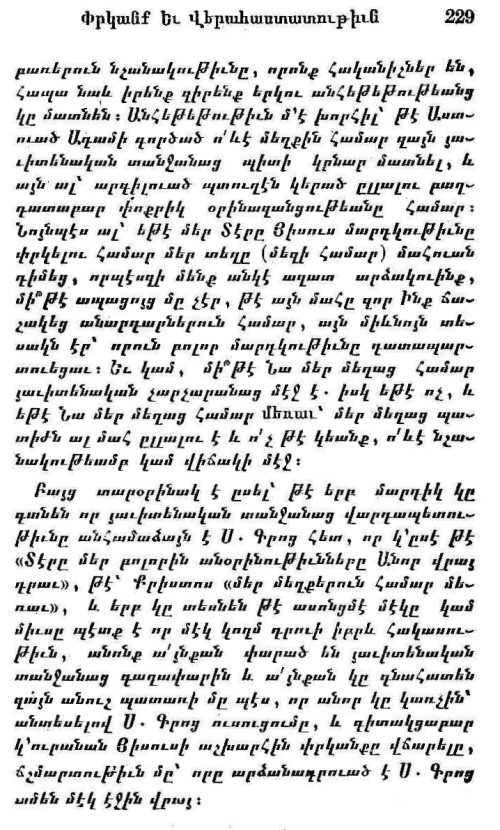 Փրկանք եւ Վերահաստատութիւն 229
բառերուն նշանակութիւնը, որոնք հականիշներ են,
հապա նաև իրենք զիրենք երկու անհեթեթութեանց
կը մատնեն։ Անհեթեթութիւն մ՚է խորհիլ՝ թէ Աստ-
ուած Ադամի գործած ո՛ևէ մեղքին համար զայն յա-
ւիտենական տանջանաց պիտի կրնար մատնել, և
այն ալ՝ արգիլուած պտուղէն կերած ըլլալու բաղ-
դատաբար փոքրիկ օրինազանցութեանը համար։
Նոյնպէս ալ՝ եթէ մեր Տէրը Յիսուս մարդկութիւնը
փրկելու համար մեր տեղը (մեզի համար) մահուան
դիմեց, որպէսզի մենք անկէ ազատ արձակուինք,
մի՞թէ ապացոյց մը չէր, թէ այն մահը զոր Ինք ճա-
շակեց անարդարներուն համար, այն միևնոյն տե-
սակն էր՝ որուն բոլոր մարդկութիւնը դատապար-
տուեցաւ։ Եւ կամ, մի՞թէ Նա մեր մեղաց համար
յաւիտենական չարչարանաց մէջ է. իսկ եթէ ոչ, և
եթէ Նա մեր մեղաց համար մեռաւ՝ մեր մեղաց պա-
տիժն ալ մահ ըլլալու է և ո՛չ թէ կեանք, ո՛ևէ նշա-
նակութեամբ կամ վիճակի մէջ։
Բայց տարօրինակ է ըսել՝ թէ երբ մարդիկ կը
գտնեն որ յաւիտենական տանջանաց վարդապետու-
թիւնը անհամաձայն է Ս. Գրոց հետ, որ կ՚ըսէ թէ
«Տէրը մեր բոլորին անօրինութիւնները Անոր վրայ
դրաւ», թէ՝ Քրիստոս «մեր մեղքերուն համար մե-
ռաւ», և երբ կը տեսնեն թէ ասոնցմէ մէկը կամ
միւսը պէտք է որ մէկ կողմ դրուի իբրև հակասու-
թիւն, անոնք ա՛յնքան փարած են յաւիտենական
տանջանաց գաղափարին և ա՛յնքան կը գնահատեն
զայն անուշ պատառի մը պէս, որ անոր կը կառչին՝
անտեսելով Ս. Գրոց ուսուցումը, և գիտակցաբար
կ՚ուրանան Յիսուսի աշխարհին փրկանքը վճարելը,
ճշմարտութիւն մը՝ որը արձանագրուած է Ս. Գրոց
ամեն մէկ էջին վրայ։